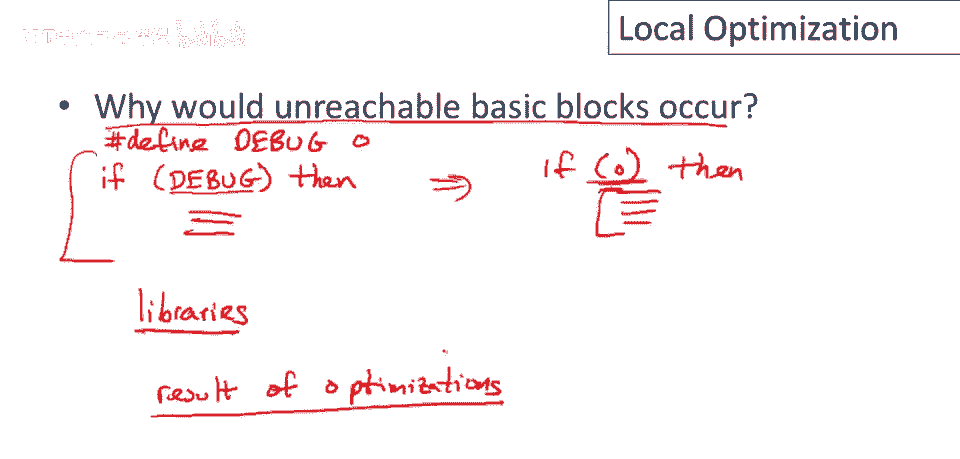 Local Optimization
• Why would unreachable basic blocks occur?
#define DEBUG 0
if (DEBUG) then ⇒ if (0) then
libraries
result of optimizations